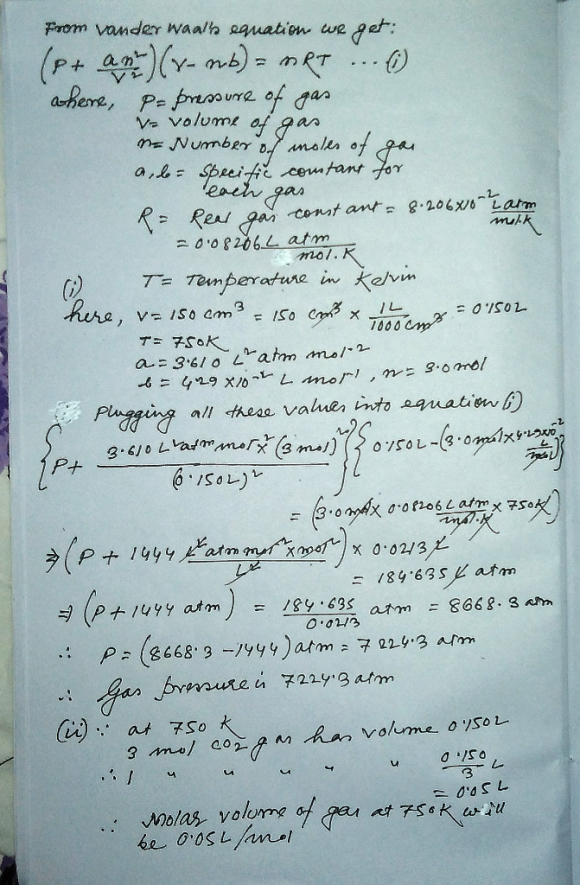 From vander Waal's equation we get:
(P + an²/V²)(V - nb) = nRT ... (i)
where, P = pressure of gas
V = volume of gas
n = Number of moles of gas
a, b = Specific constant for
each gas
R = Real gas constant = 8.206 X10⁻² L atm/mol.K
= 0.08206 L atm/mol.K
T = Temperature in Kelvin
(i)
here, V = 150 cm³ = 150 cm³ x 1L/1000 cm³ = 0.150L
T = 750K
a = 3.610 L² atm mol⁻²
b = 4.29 X10⁻² L mol⁻¹, n = 3.0 mol
Plugging all these values into equation (i)
{P + 3.610 L² atm mol⁻² x (3 mol)²/(0.150L)²} {0.150L - (3.0 mol x 4.29x10⁻² L/mol)}
= (3.0 mol x 0.08206 L atm/mol.K x 750K)
⇒ (P + 1444 L² atm mol⁻² x mol²/L²) x 0.0213 L
= 184.635 L atm
⇒ (P + 1444 atm) = 184.635/0.0213 atm = 8668.3 atm
∴ P = (8668.3 - 1444) atm = 7224.3 atm
∴ Gas pressure is 7224.3 atm
(ii) ∵ at 750 K
3 mol CO₂ gas has volume 0.150L
∴ 1 " " " " " 0.150/3 L
= 0.05 L
∴ Molar volume of gas at 750K will
be 0.05 L/mol